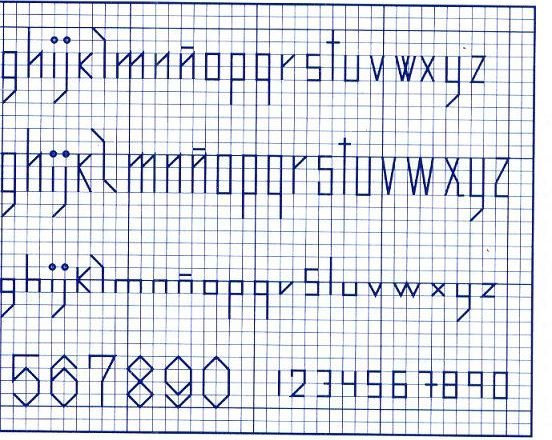 g h i j k l m n ñ o p q r s t u v w x y z
g h i j k l m n ñ o p q r s t u v w x y z
g h i j k l m n ñ o p q r s t u v w x y z
5 6 7 8 9 0 1 2 3 4 5 6 7 8 9 0